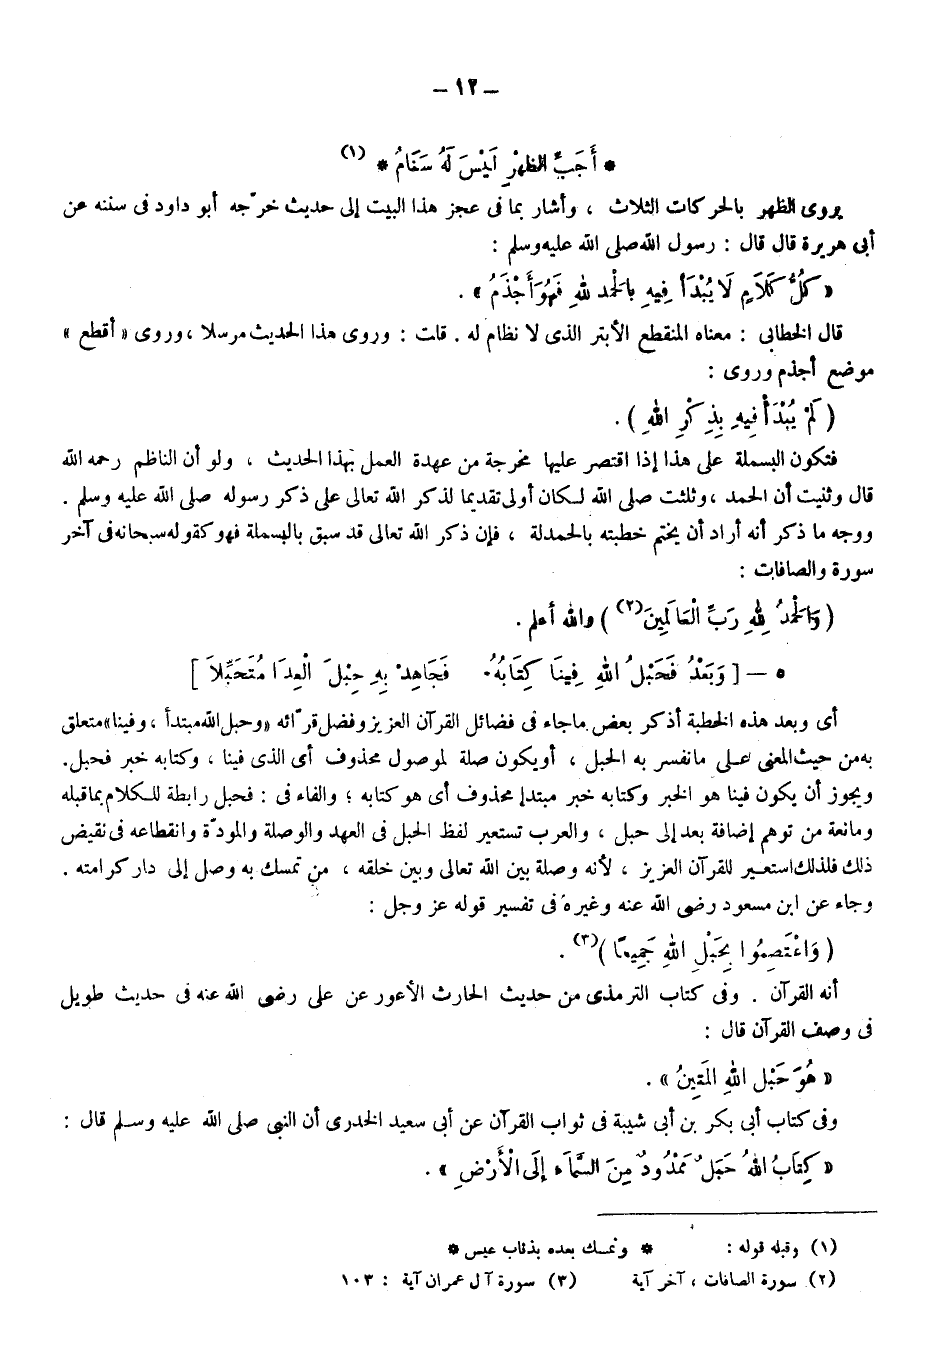 – ١٢ –
* أَجَبِّ الظهْرِ لَيْسَ لَهُ سَنَامُ * (١)
يروى الظهر بالحركات الثلاث ، وأشار بما فى عجز هذا البيت إلى حديث خرّجه أبو داود فى سننه عن
أبى هريرة قال قال : رسول الله صلى الله عليه وسلم :
« كُلُّ كَلَامٍ لَا يُبْدَأُ فِيهِ بِالْحَمْدِ لِلهِ فَهُوَ أَجْذَمُ » .
قال الخطابى : معناه المنقطع الأبتر الذى لا نظام له . قلت : وروى هذا الحديث مرسلا ، وروى « أقطع »
موضع أجذم وروى :
( لَمْ يُبْدَأْ فِيهِ بِذِكْرِ اللهِ ) .
فتكون البسملة على هذا إذا اقتصر عليها مخرجة من عهدة العمل بهذا الحديث ، ولو أن الناظم رحمه الله
قال وثنيت أن الحمد ، وثلثت صلى الله لكان أولى تقديما لذكر الله تعالى على ذكر رسوله صلى الله عليه وسلم .
ووجه ما ذكر أنه أراد أن يختم خطبته بالحمدلة ، فإن ذكر الله تعالى قد سبق بالبسملة فهو كقوله سبحانه فى آخر
سورة والصافات :
( وَالْحَمْدُ لِلهِ رَبِّ الْعَالَمِينَ(٢) ) والله أعلم .
٥ – [ وَبَعْدُ فَحَبْلُ اللهِ فِينَا كِتَابُهُ فَجَاهِدْ بِهِ حِبْلَ الْعِدَا مُتَحَبِّلاَ ]
أى وبعد هذه الخطبة أذكر بعض ماجاء فى فضائل القرآن العزيز وفضل قرّائه «وحبل الله مبتدأ ، وفينا» متعلق
به من حيث المعنى على مانفسر به الحبل ، أو يكون صلة لموصول محذوف أى الذى فينا ، وكتابه خبر فحبل.
ويجوز أن يكون فينا هو الخبر وكتابه خبر مبتدإ محذوف أى هو كتابه ؛ والفاء فى : فحبل رابطة للكلام بماقبله
ومانعة من توهم إضافة بعد إلى حبل ، والعرب تستعير لفظ الحبل فى العهد والوصلة والمودّة وانقطاعه فى نقيض
ذلك فلذلك استعير للقرآن العزيز ، لأنه وصلة بين الله تعالى وبين خلقه ، من تمسك به وصل إلى دار كرامته .
وجاء عن ابن مسعود رضى الله عنه وغيره فى تفسير قوله عز وجل :
( وَاعْتَصِمُوا بِحَبْلِ اللهِ جَمِيعًا )(٣) .
أنه القرآن . وفى كتاب الترمذى من حديث الحارث الأعور عن على رضى الله عنه فى حديث طويل
فى وصف القرآن قال :
« هُوَ حَبْلُ اللهِ الْمَتِينُ » .
وفى كتاب أبى بكر بن أبى شيبة فى ثواب القرآن عن أبى سعيد الخدرى أن النبى صلى الله عليه وسلم قال :
« كِتَابُ اللهُ حَبَلٌ مَمْدُودٌ مِنَ السَّمَاءِ إِلَى الْأَرْضِ » .
(١) وقبله قوله : * ونمسك بعده بذناب عيس *
(٢) سورة الصافات ، آخر آية (٣) سورة آل عمران آية : ١٠٣